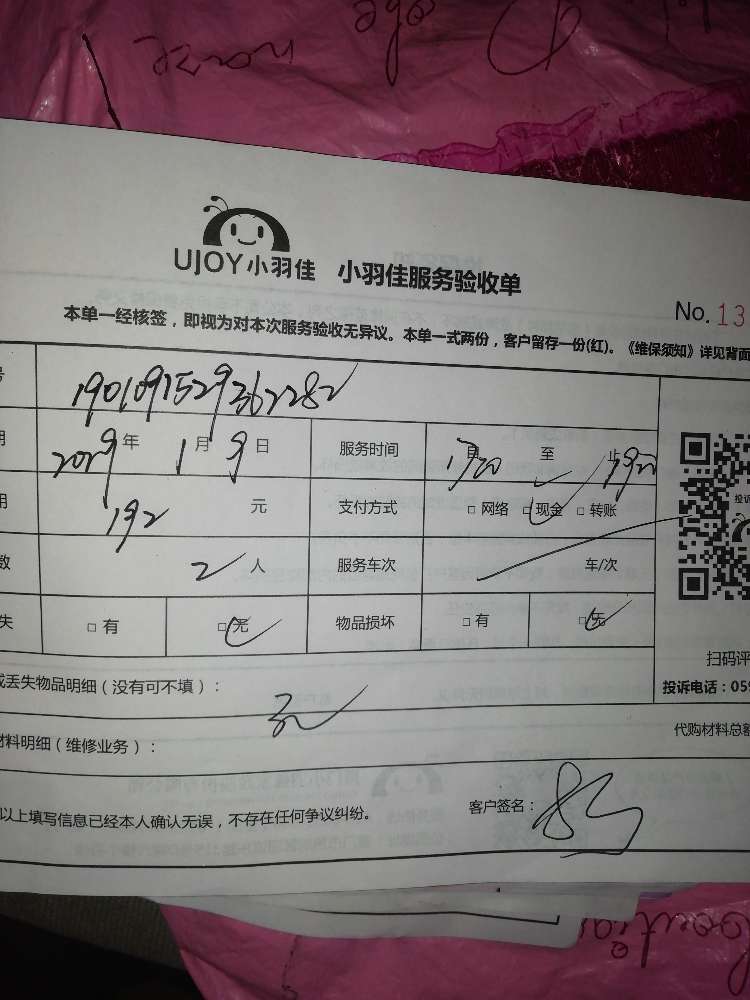 nouze
UJOY小羽佳 小羽佳服务验收单
No.13
本单一经核签，即视为对本次服务验收无异议。本单一式两份，客户留存一份(红)。《维保须知》详见背面
号 1901091529362282
期 2029年 1月 9日 服务时间 1720 至 止1920
用 192 元 支付方式 □ 网络 □ 现金 □ 转账
数 2 人 服务车次 车/次
失 □ 有 □ 无 物品损坏 □ 有 □ 无
扫码评
或丢失物品明细（没有可不填）： 无
投诉电话：059
材料明细（维修业务）：
代购材料总额
以上填写信息已经本人确认无误，不存在任何争议纠纷。
客户签名：